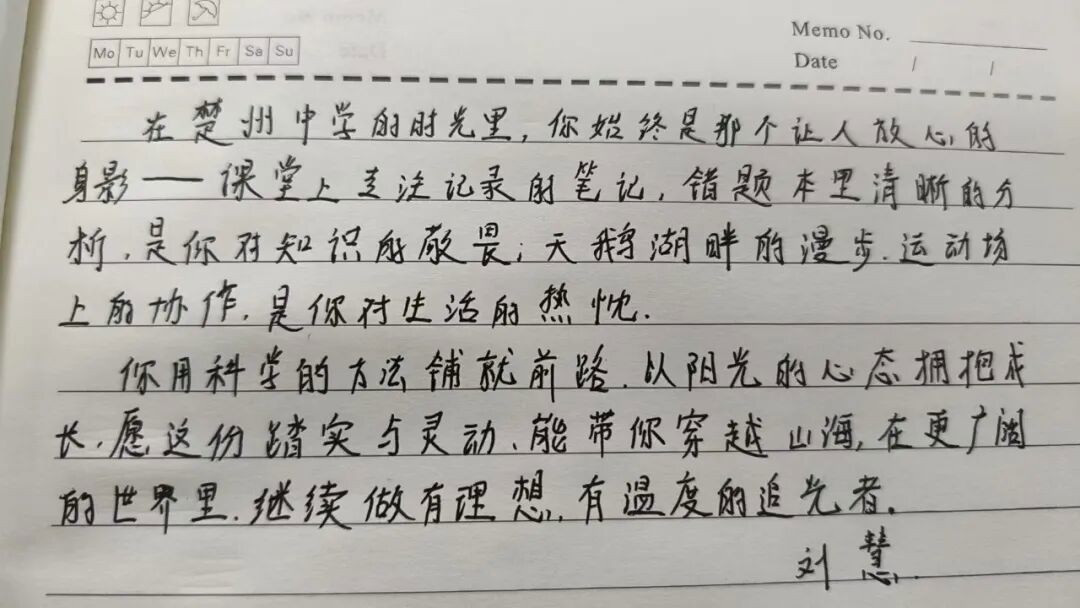 Memo No.
Mo Tu We Th Fr Sa Su
Date / /
在楚州中学的时光里，你始终是那个让人放心的
身影——课堂上专注记录的笔记，错题本里清晰的分
析，是你对知识的敬畏；天鹅湖畔的漫步、运动场
上的协作，是你对生活的热忱.
你用科学的方法铺就前路，以阳光的心态拥抱成
长，愿这份踏实与灵动，能带你穿越山海，在更广阔
的世界里，继续做有理想，有温度的追光者.
刘慧.